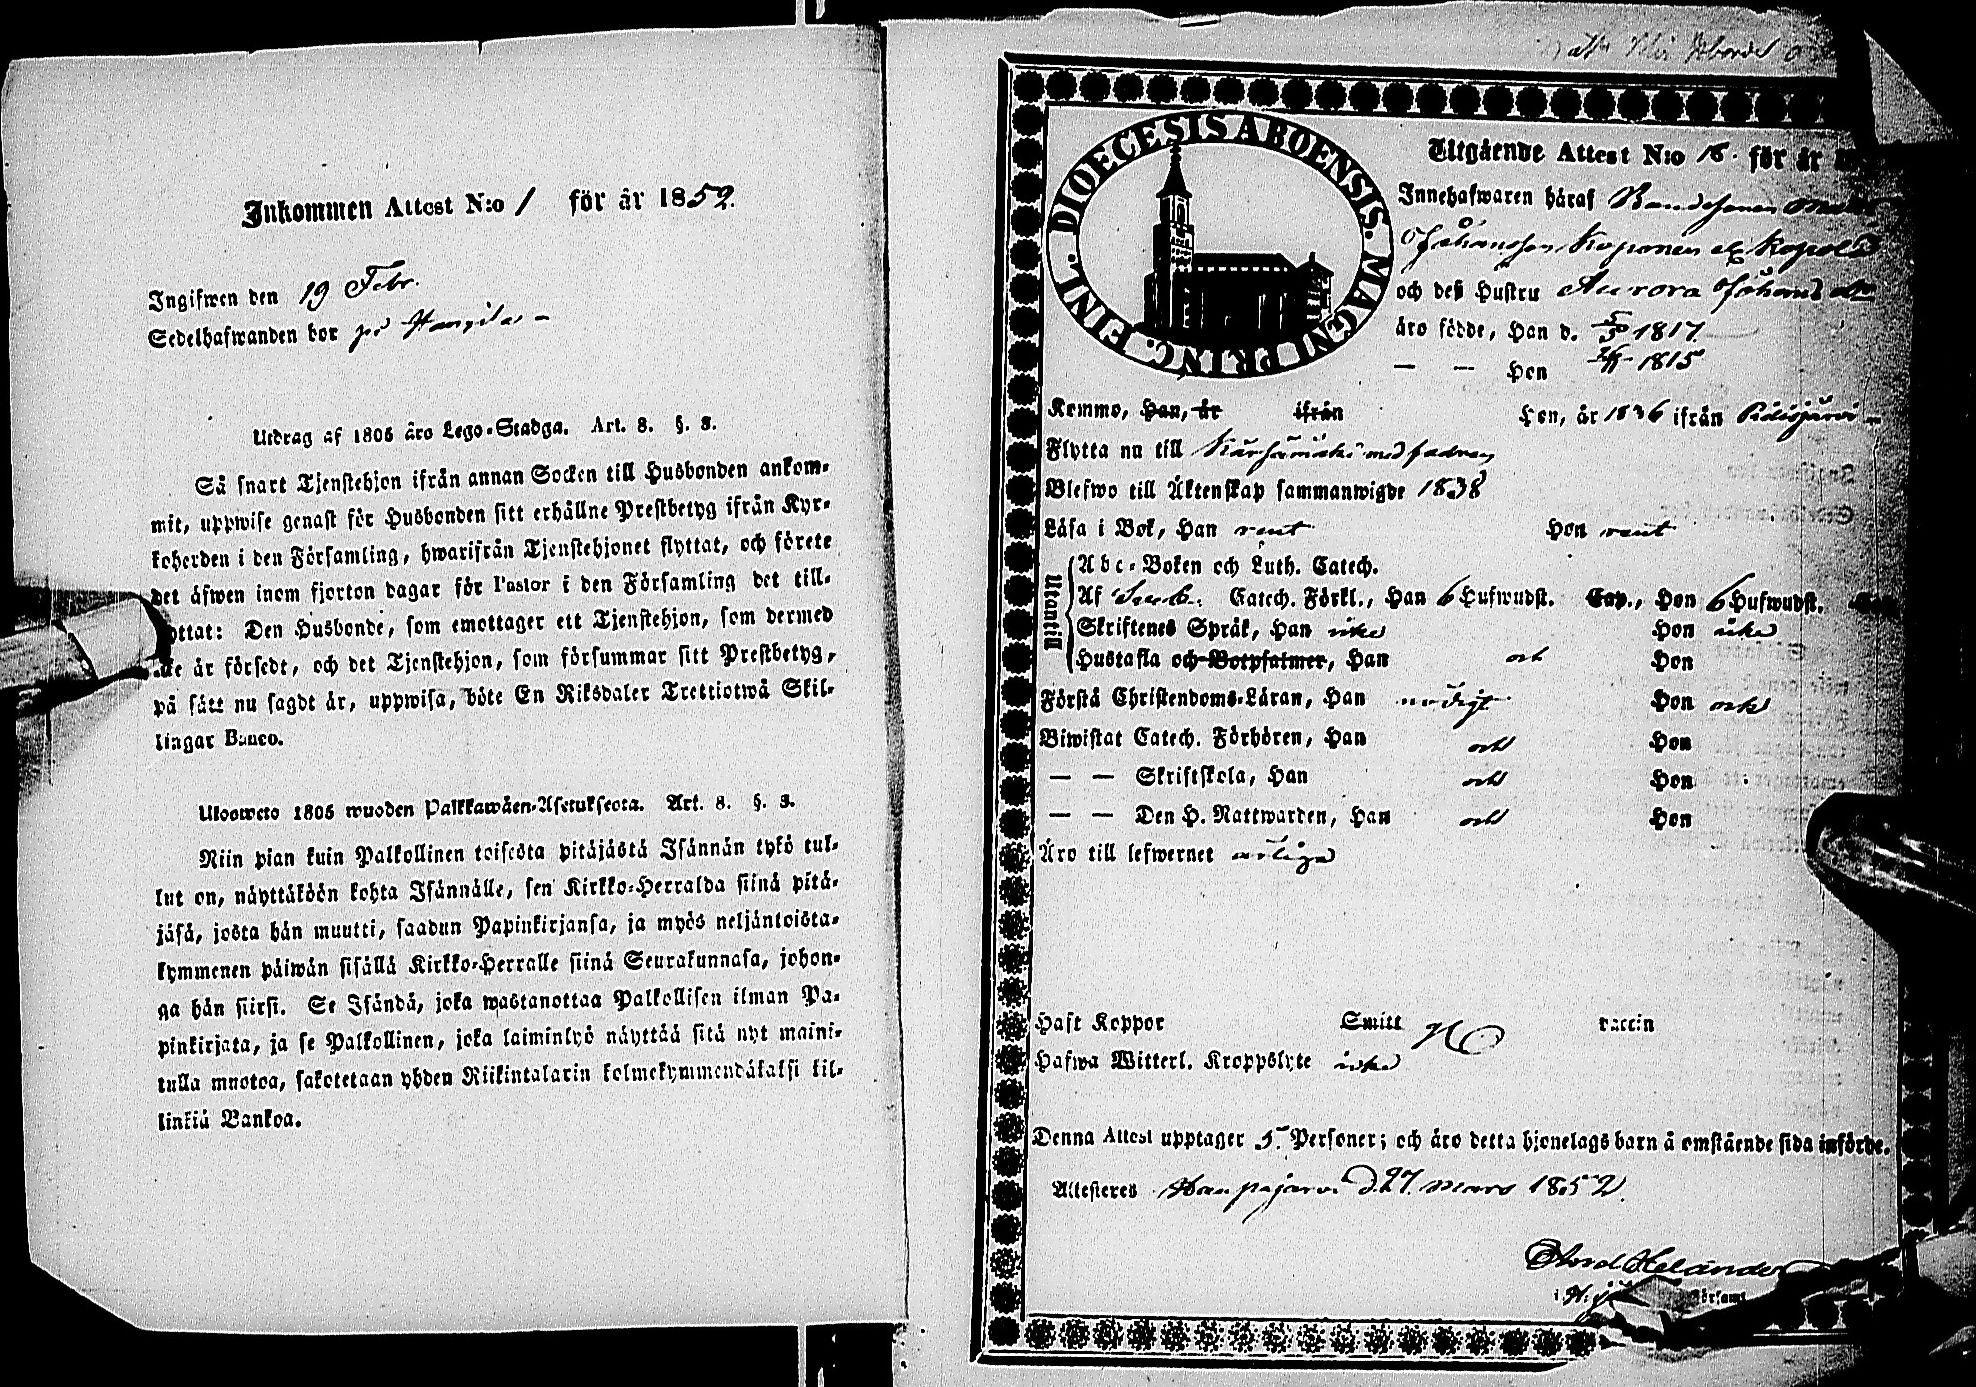 Inkommen Attest N:o 1 för år 1852.
Ingifwen den 19 Febr.
Sedelhafwanden bor på
Utdrag af 1805 års Lego-Stadga. Art. 8. §. 3.
Så snart Tjenstehjon ifrån annan Socken till Husbonden ankom-
mit, uppwise genast för Husbonden sitt erhållne Prestbetyg ifrån Kyr-
koherden i den Församling, hwarifrån Tjenstehjonet flyttat, och förete
det äfwen inom fjorton dagar för Pastor i den Församling det till-
flyttat: Den Husbonde, som emottager ett Tjenstehjon, som dermed
är försedt, och det Tjenstehjon, som försummar sitt Prestbetyg,
på sätt nu sagdt är, uppwisa, böte En Riksdaler Trettiotwå Skil-
lingar Banco.
Ulosweto 1805 wuoden Palkkawäen-Asetuksesta. Art. 8. §. 3.
Niin pian kuin Palkollinen toisesta pitäjästä Isännän tykö tul-
lut on, näyttäköön kohta Isännälle, sen Kirkko-Herralda siinä pitä-
jäsä, josta hän muutti, saadun Papinkirjansa, ja myös neljäntoista-
kymmenen päiwän sisällä Kirkko-Herralle siinä Seurakunnasa, johon-
ga hän siirsi. Se Isändä, joka wastanottaa Palkollisen ilman Pa-
pinkirjata, ja se Palkollinen, joka laiminlyö näyttää sitä nyt maini-
tulla muotoa, sakotetaan yhden Riikintalarin kolmekymmendäkaksi kil-
linkiä Bankoa.
DIOECESIS ABOENSIS. MAGNI PRINC. FINL.
Utgående Attest N:o 16. för år
Innehafwaren häraf
Johansson Koponen
och deß Hustru Aurora Johans dr
äro födde, Han d. 5/5 1817.
— — Hon 1815
Kommo, Han, år ifrån Hon, år 1836 ifrån Pidisjärvi
Flytta nu till Kärsämäki med fadren
Blefwo till Äktenskap sammanwigde 1838
Läsa i Bok, Han rent Hon rent
Utantill
Abc-Boken och Luth. Catech.
Af Catech. Förkl., Han 6 Hufwudst. Cap., Hon 6 Hufwudst.
Skriftenes Språk, Han icke Hon icke
Hustafla och Botpsalmer, Han och Hon
Förstå Christendoms-Läran, Han nödigt Hon och
Biwistat Catech. Förhören, Han och Hon
— — Skriftskola, Han och Hon
— — Den H. Nattwarden, Han och Hon
Äro till lefwernet ärliga
Haft Koppor Smitt vaccin
Hafwa Witterl. Kroppslyte icke
Denna Attest upptager 5. Personer; och äro detta hjonelags barn å omstående sida införde.
Attesteres Haapajärvi d. 27. mars 1852.
Helander